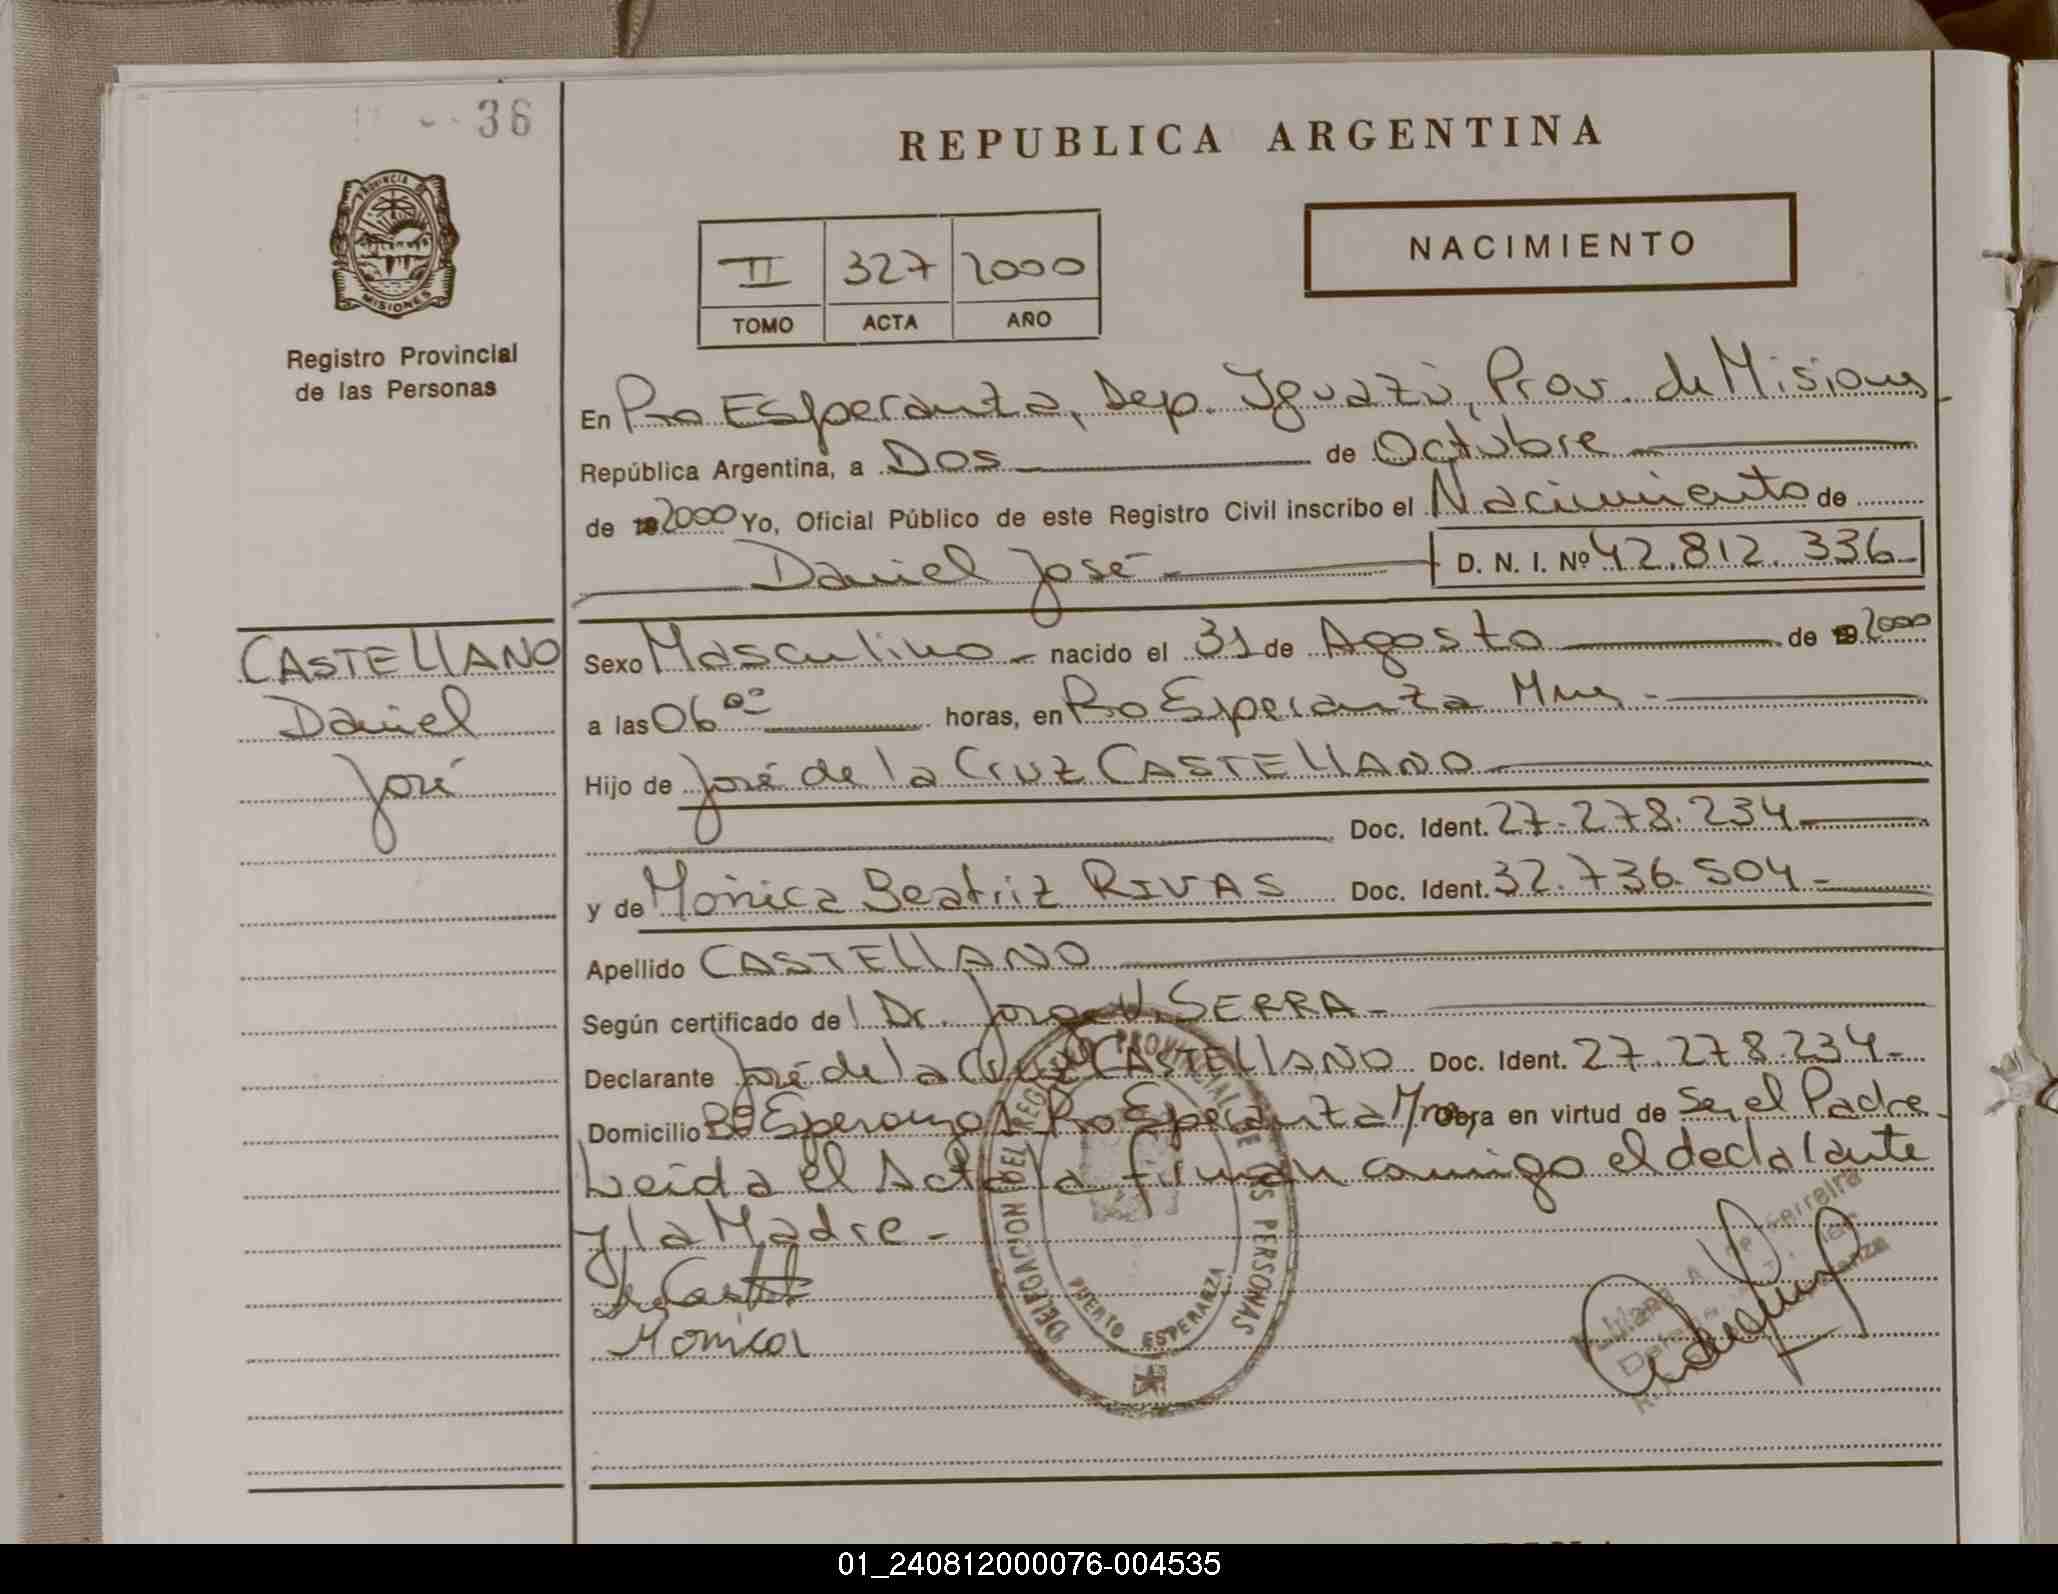 36
REPUBLICA ARGENTINA
PROVINCIA DE
MISIONES
Registro Provincial
de las Personas
II 327 2000
TOMO ACTA AÑO
NACIMIENTO
En Pto Esperanza, Dep. Iguazú, Prov. de Misiones
República Argentina, a Dos de Octubre
de 2000 Yo, Oficial Público de este Registro Civil inscribo el Nacimiento de
Daniel José D. N. I. Nº 42.812.336
CASTELLANO
Daniel
José
Sexo Masculino nacido el 31 de Agosto de 2000
a las 06 00 horas, en Pto Esperanza Mnes
Hijo de José de la Cruz CASTELLANO
Doc. Ident. 27.278.234
y de Mónica Beatriz RIVAS Doc. Ident. 32.736.504
Apellido CASTELLANO
Según certificado del Dr. Jorge V. SERRA
Declarante José de la Cruz CASTELLANO Doc. Ident. 27.278.234
Domicilio Bº Esperanza Pto Esperanza Mnes Obra en virtud de Ser el Padre
Leida el Acta la firman conmigo el declarante
y la Madre
Monica
DELEGACION DEL REGISTRO PROVINCIAL DE LAS PERSONAS
PUERTO ESPERANZA
01_240812000076-004535